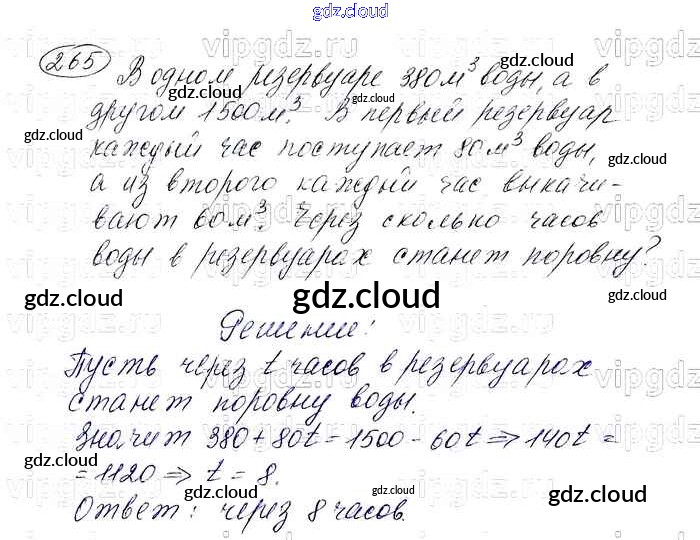 gdz.cloud
265 В одном резервуаре 380м³ воды, а в
другом 1500м³. В первый резервуар
каждый час поступает 80м³ воды,
а из второго каждый час выкачи-
вают 60м³. Через сколько часов
воды в резервуарах станет поровну?
Решение:
Пусть через t часов в резервуарах
станет поровну воды.
Значит 380 + 80t = 1500 - 60t ⇒ 140t =
= 1120 ⇒ t = 8.
Ответ: через 8 часов.